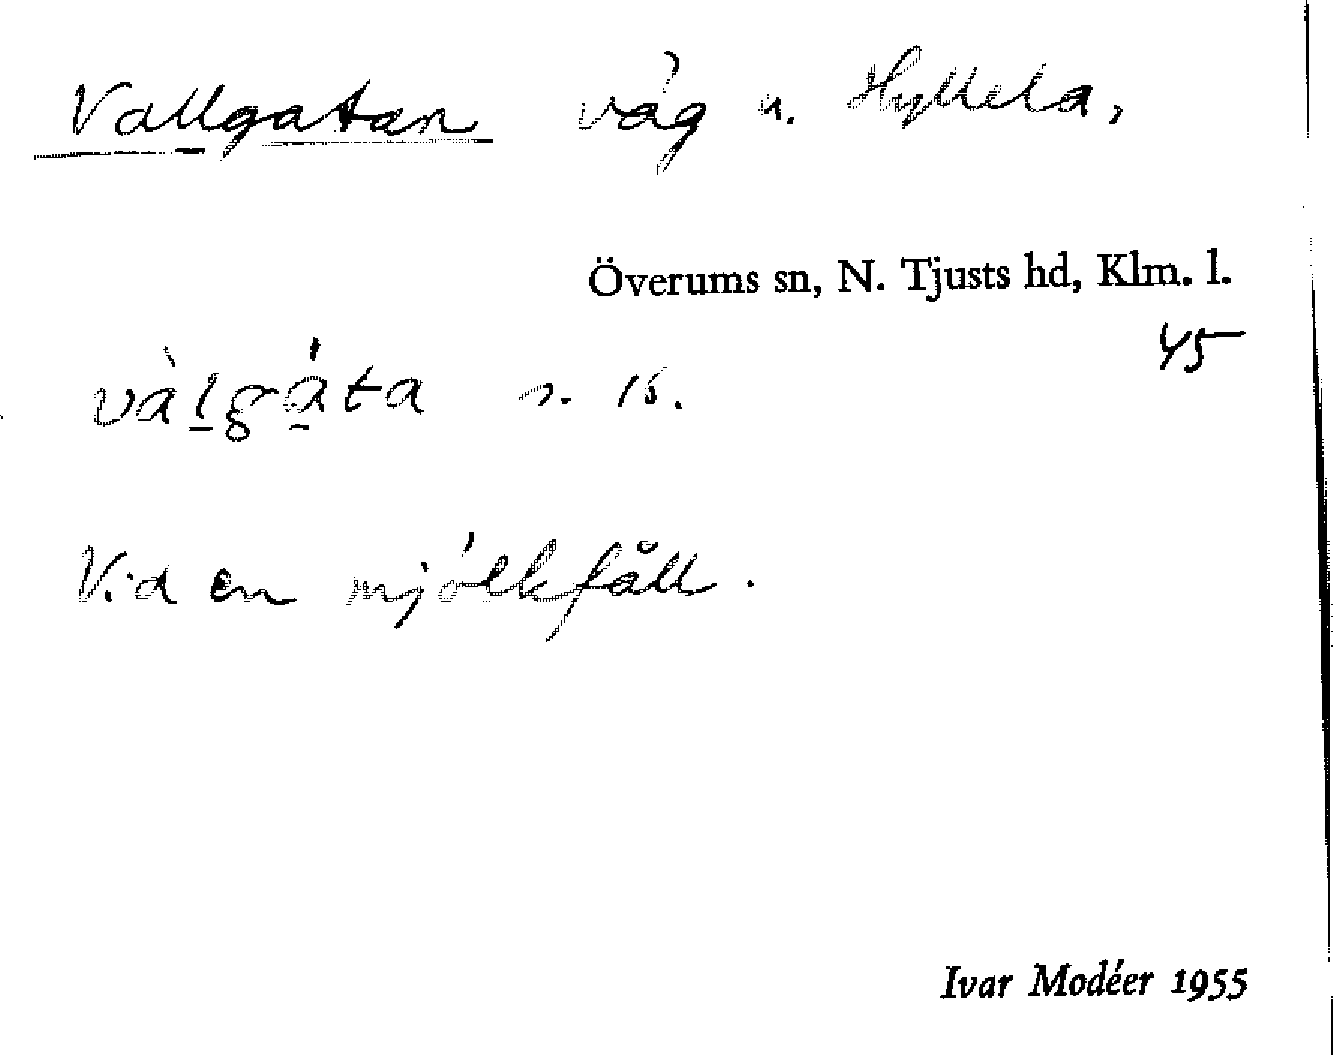 Vallgatan väg u. Hyllela,
Överums sn, N. Tjusts hd, Klm. l.
45
vàlgáta
Vid en mjölkfåll.
Ivar Modéer 1955